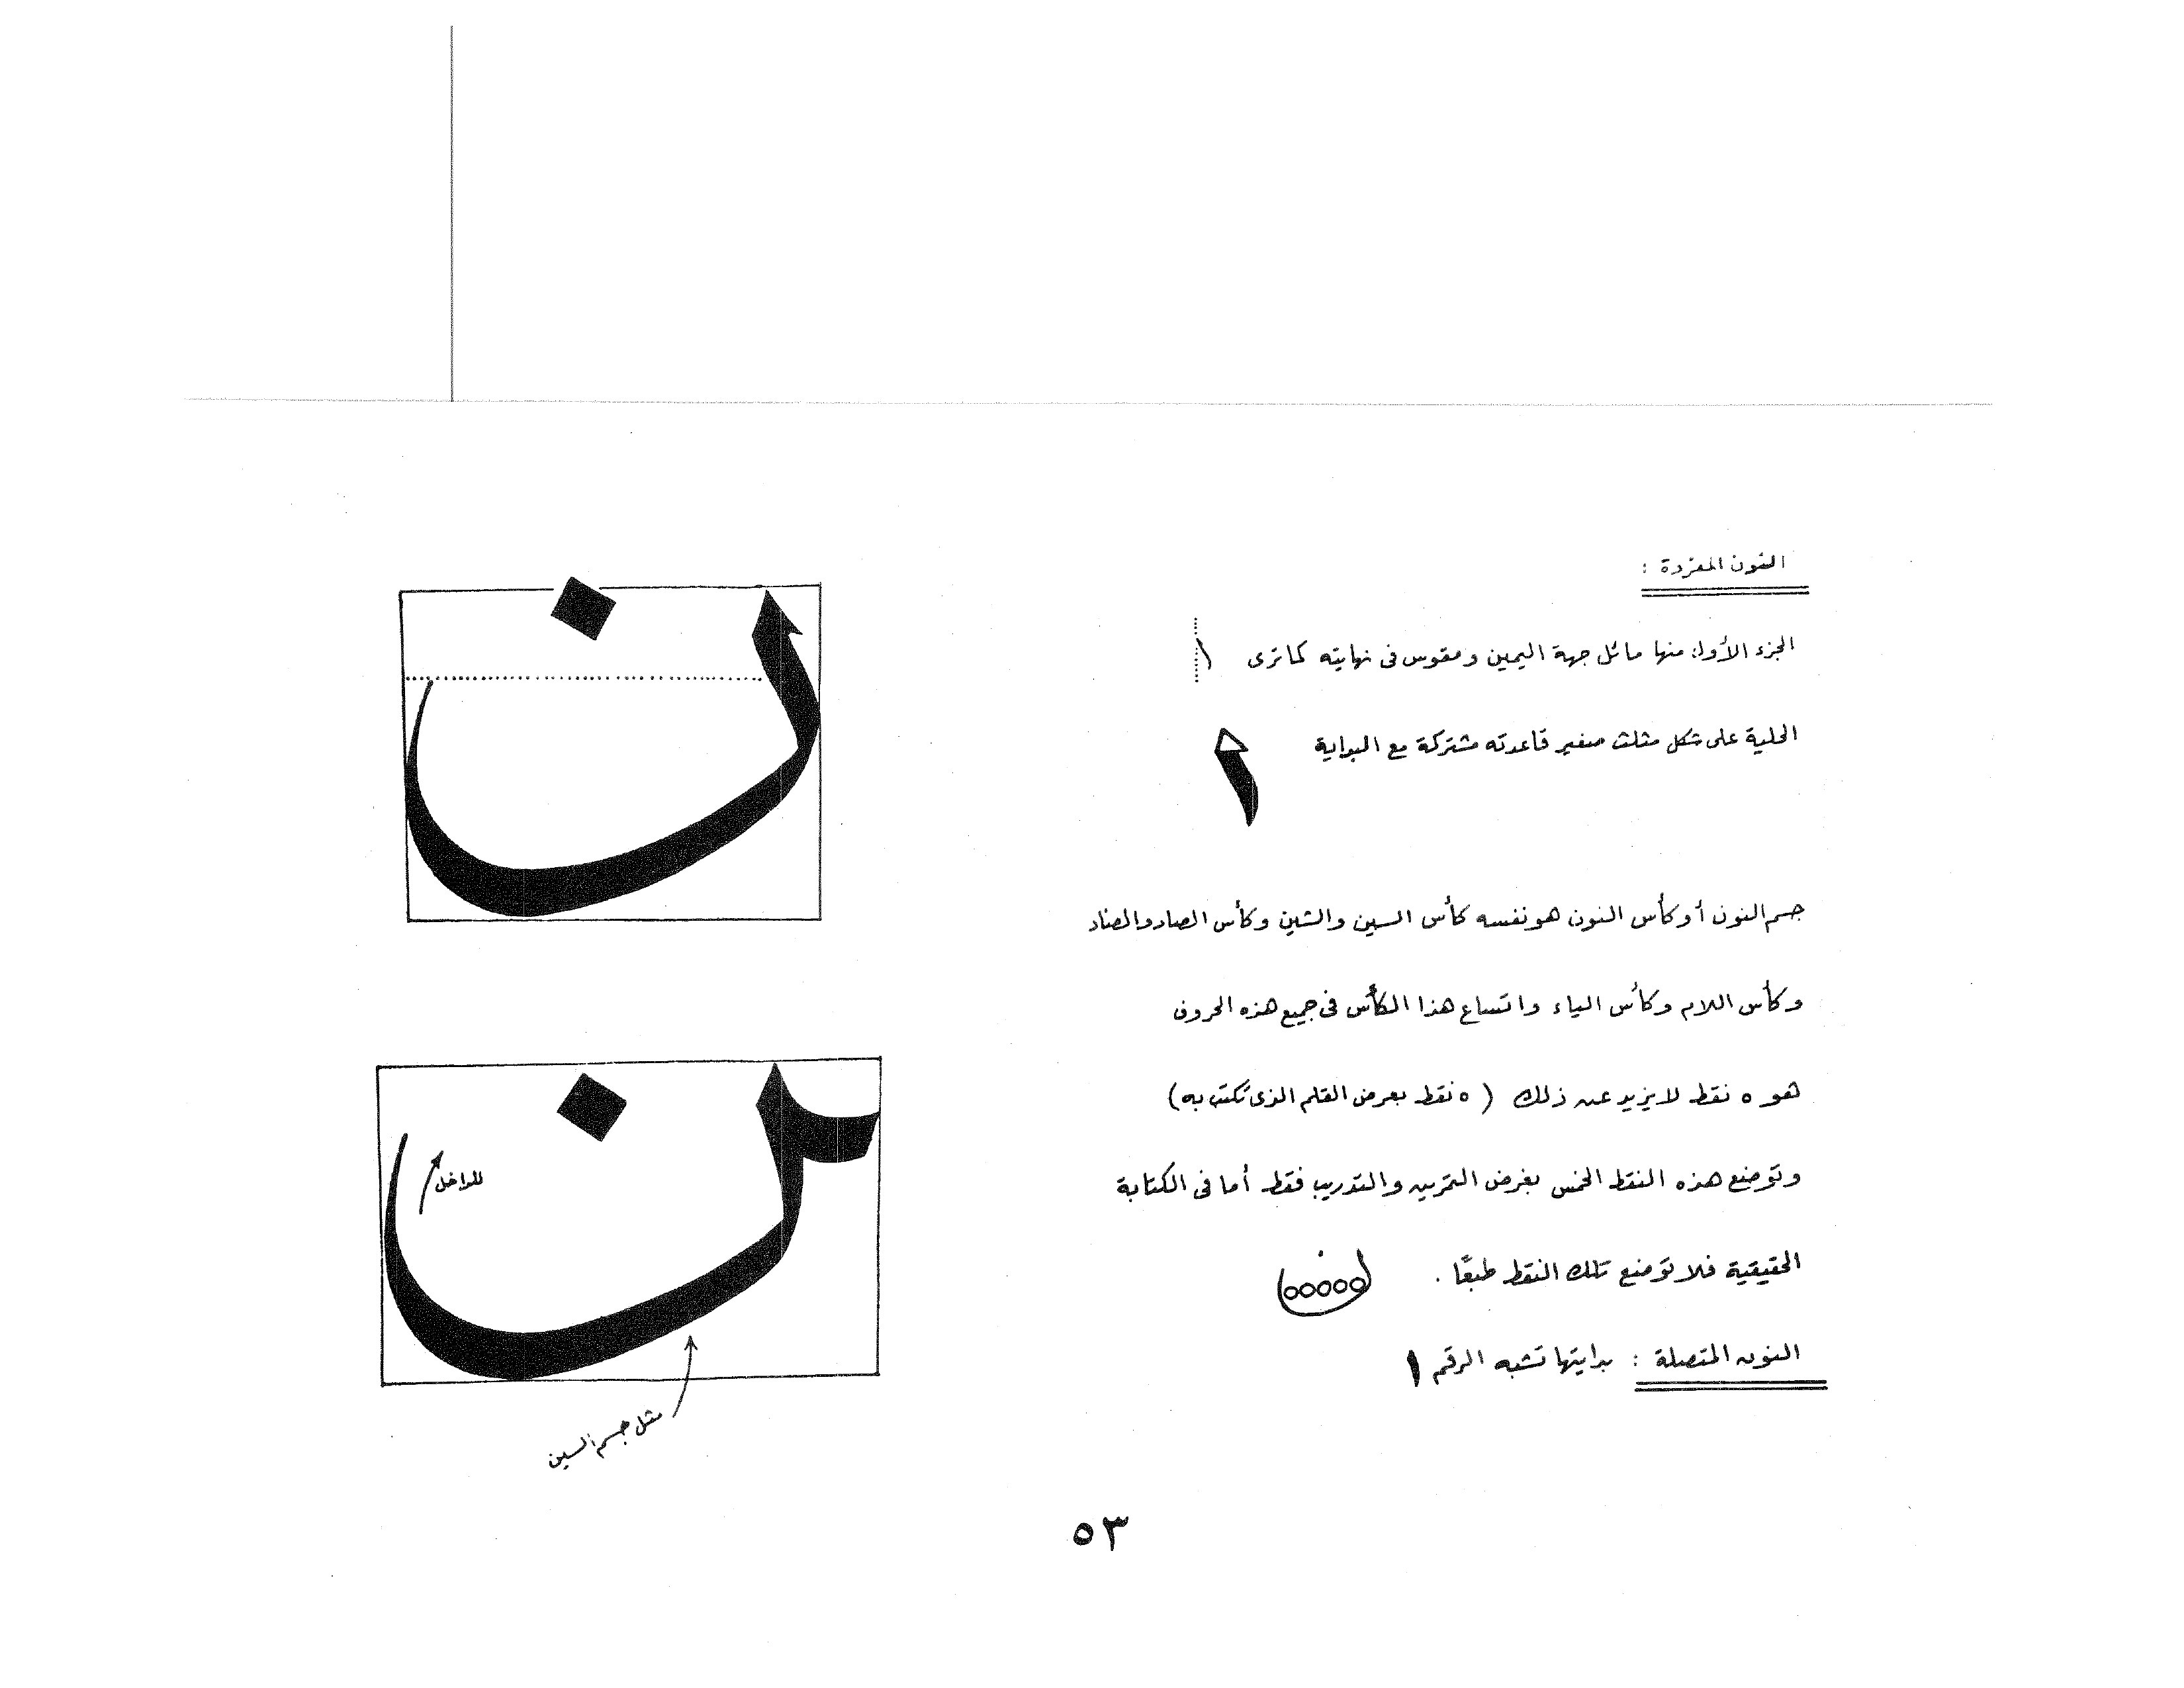 النون المفردة :
الجزء الأول منها مائل جهة اليمين ومقوس فى نهايته كما ترى
الحلية على شكل مثلث صغير قاعدته مشتركة مع البداية
جسم النون أو كأس النون هو نفسه كأس السين والشين وكأس الصاد والضاد
وكأس اللام وكأس الياء واتساع هذا الكأس فى جميع هذه الحروف
هو ٥ نقط لا يزيد عن ذلك ( ٥ نقط بعرض القلم الذى تكتب به )
وتوضع هذه النقط الخمس بغرض التمرين والتدريب فقط أما فى الكتابة
الحقيقية فلا توضع تلك النقط طبعًا .
النون المتصلة : بدايتها تشبه الرقم ١
ن
ن
للداخل
مثل جسم السين
٥٣